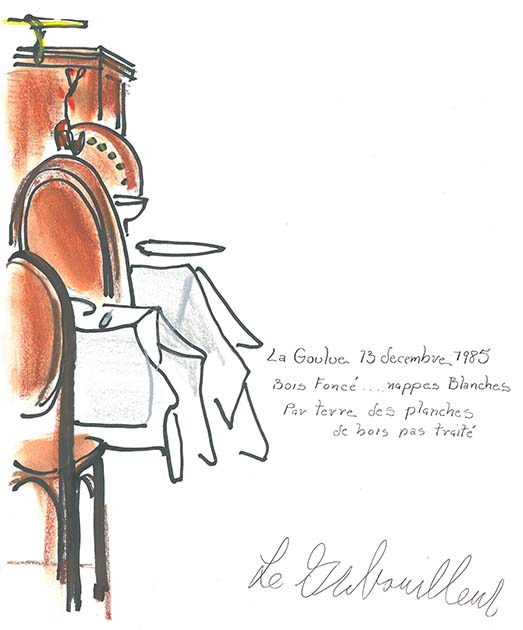 La Goulue 13 decembre 1985
Bois Foncé.... nappes Blanches
Par terre des planches
de bois pas traité
Le